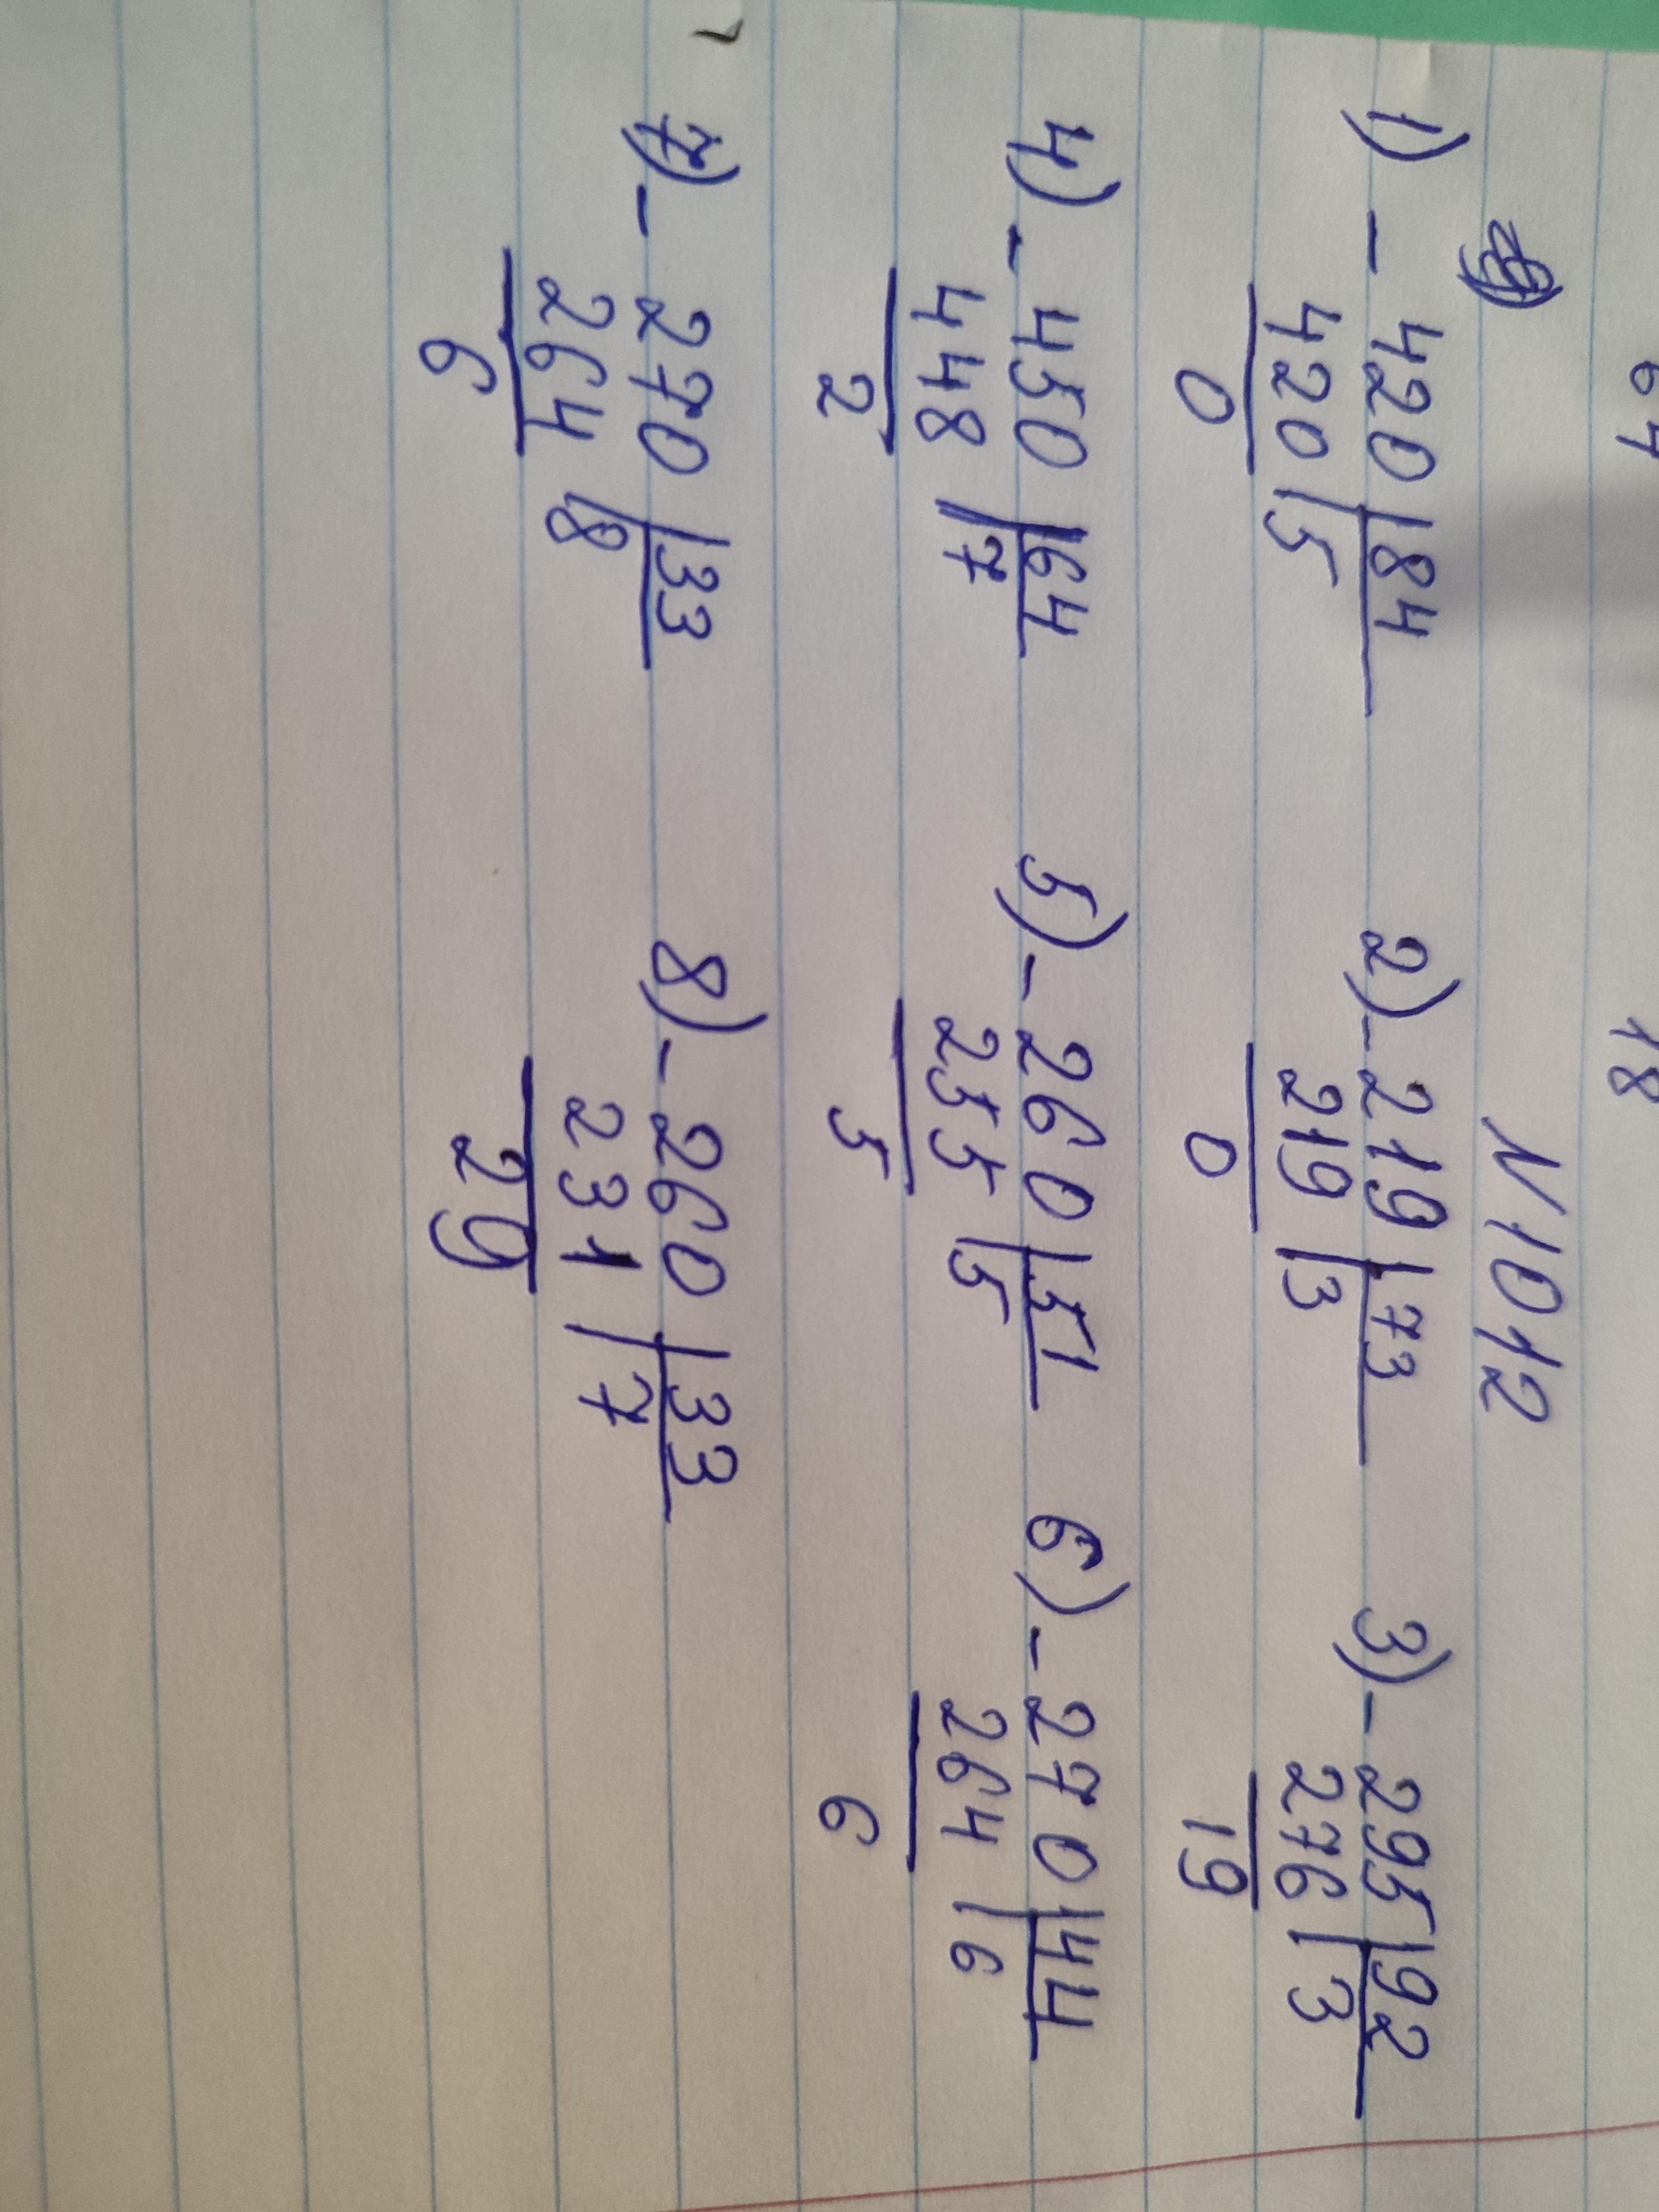 64 18
N 1012
1) - 420 | 84 2) - 219 | 73 3) - 295 | 92
420 | 5 219 | 3 276 | 3
0 0 19
4) - 450 | 64 5) - 260 | 51 6) - 270 | 44
448 | 7 255 | 5 264 | 6
2 5 6
7) - 270 | 33 8) - 260 | 33
264 | 8 231 | 7
6 29